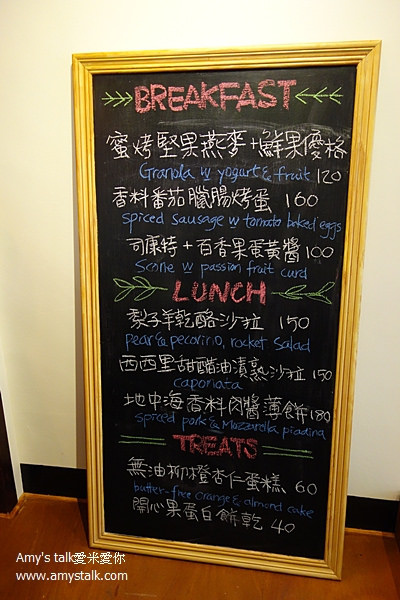 BREAKFAST
蜜烤堅果燕麥+鮮果優格
Granola w yogurt & fruit 120
香料番茄臘腸烤蛋 160
spiced sausage w tomato baked eggs
司康特+百香果蛋黃醬 100
Scone w passion fruit curd
LUNCH
梨子羊乾酪沙拉 150
pear & pecorino, rocket Salad
西西里甜醋油漬熟沙拉 150
caponata
地中海香料肉醬薄餅 180
spiced pork & Mozzarella piadina
TREATS
無油柳橙杏仁蛋糕 60
butter-free orange & almond cake
開心果蛋白餅乾 40
Amy's talk愛米愛你
www.amystalk.com